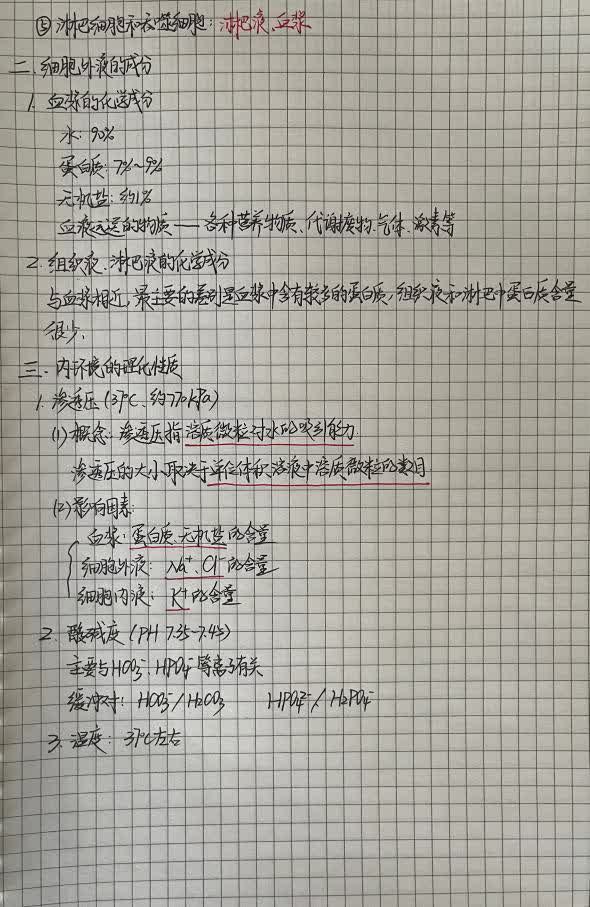 ⑤ 淋巴细胞和吞噬细胞：淋巴液、血浆
二. 细胞外液的成分
1. 血浆的化学成分
水：90%
蛋白质：7%~9%
无机盐：约1%
血液运送的物质——各种营养物质、代谢废物、气体、激素等
2. 组织液、淋巴液的化学成分
与血浆相近，最主要的差别是血浆中含有较多的蛋白质，组织液和淋巴中蛋白质含量
很少。
三. 内环境的理化性质
1. 渗透压(37℃、约770kPa)
(1)概念：渗透压指溶质微粒对水的吸引能力
渗透压的大小取决于单位体积溶液中溶质微粒的数目
(2)影响因素：
血浆：蛋白质、无机盐的含量
细胞外液：Na⁺、Cl⁻的含量
细胞内液：K⁺的含量
2. 酸碱度(PH 7.35-7.45)
主要与HCO₃⁻、HPO₄⁻等离子有关
缓冲对：HCO₃⁻/H₂CO₃ HPO₄²⁻/H₂PO₄⁻
3. 温度：37℃左右